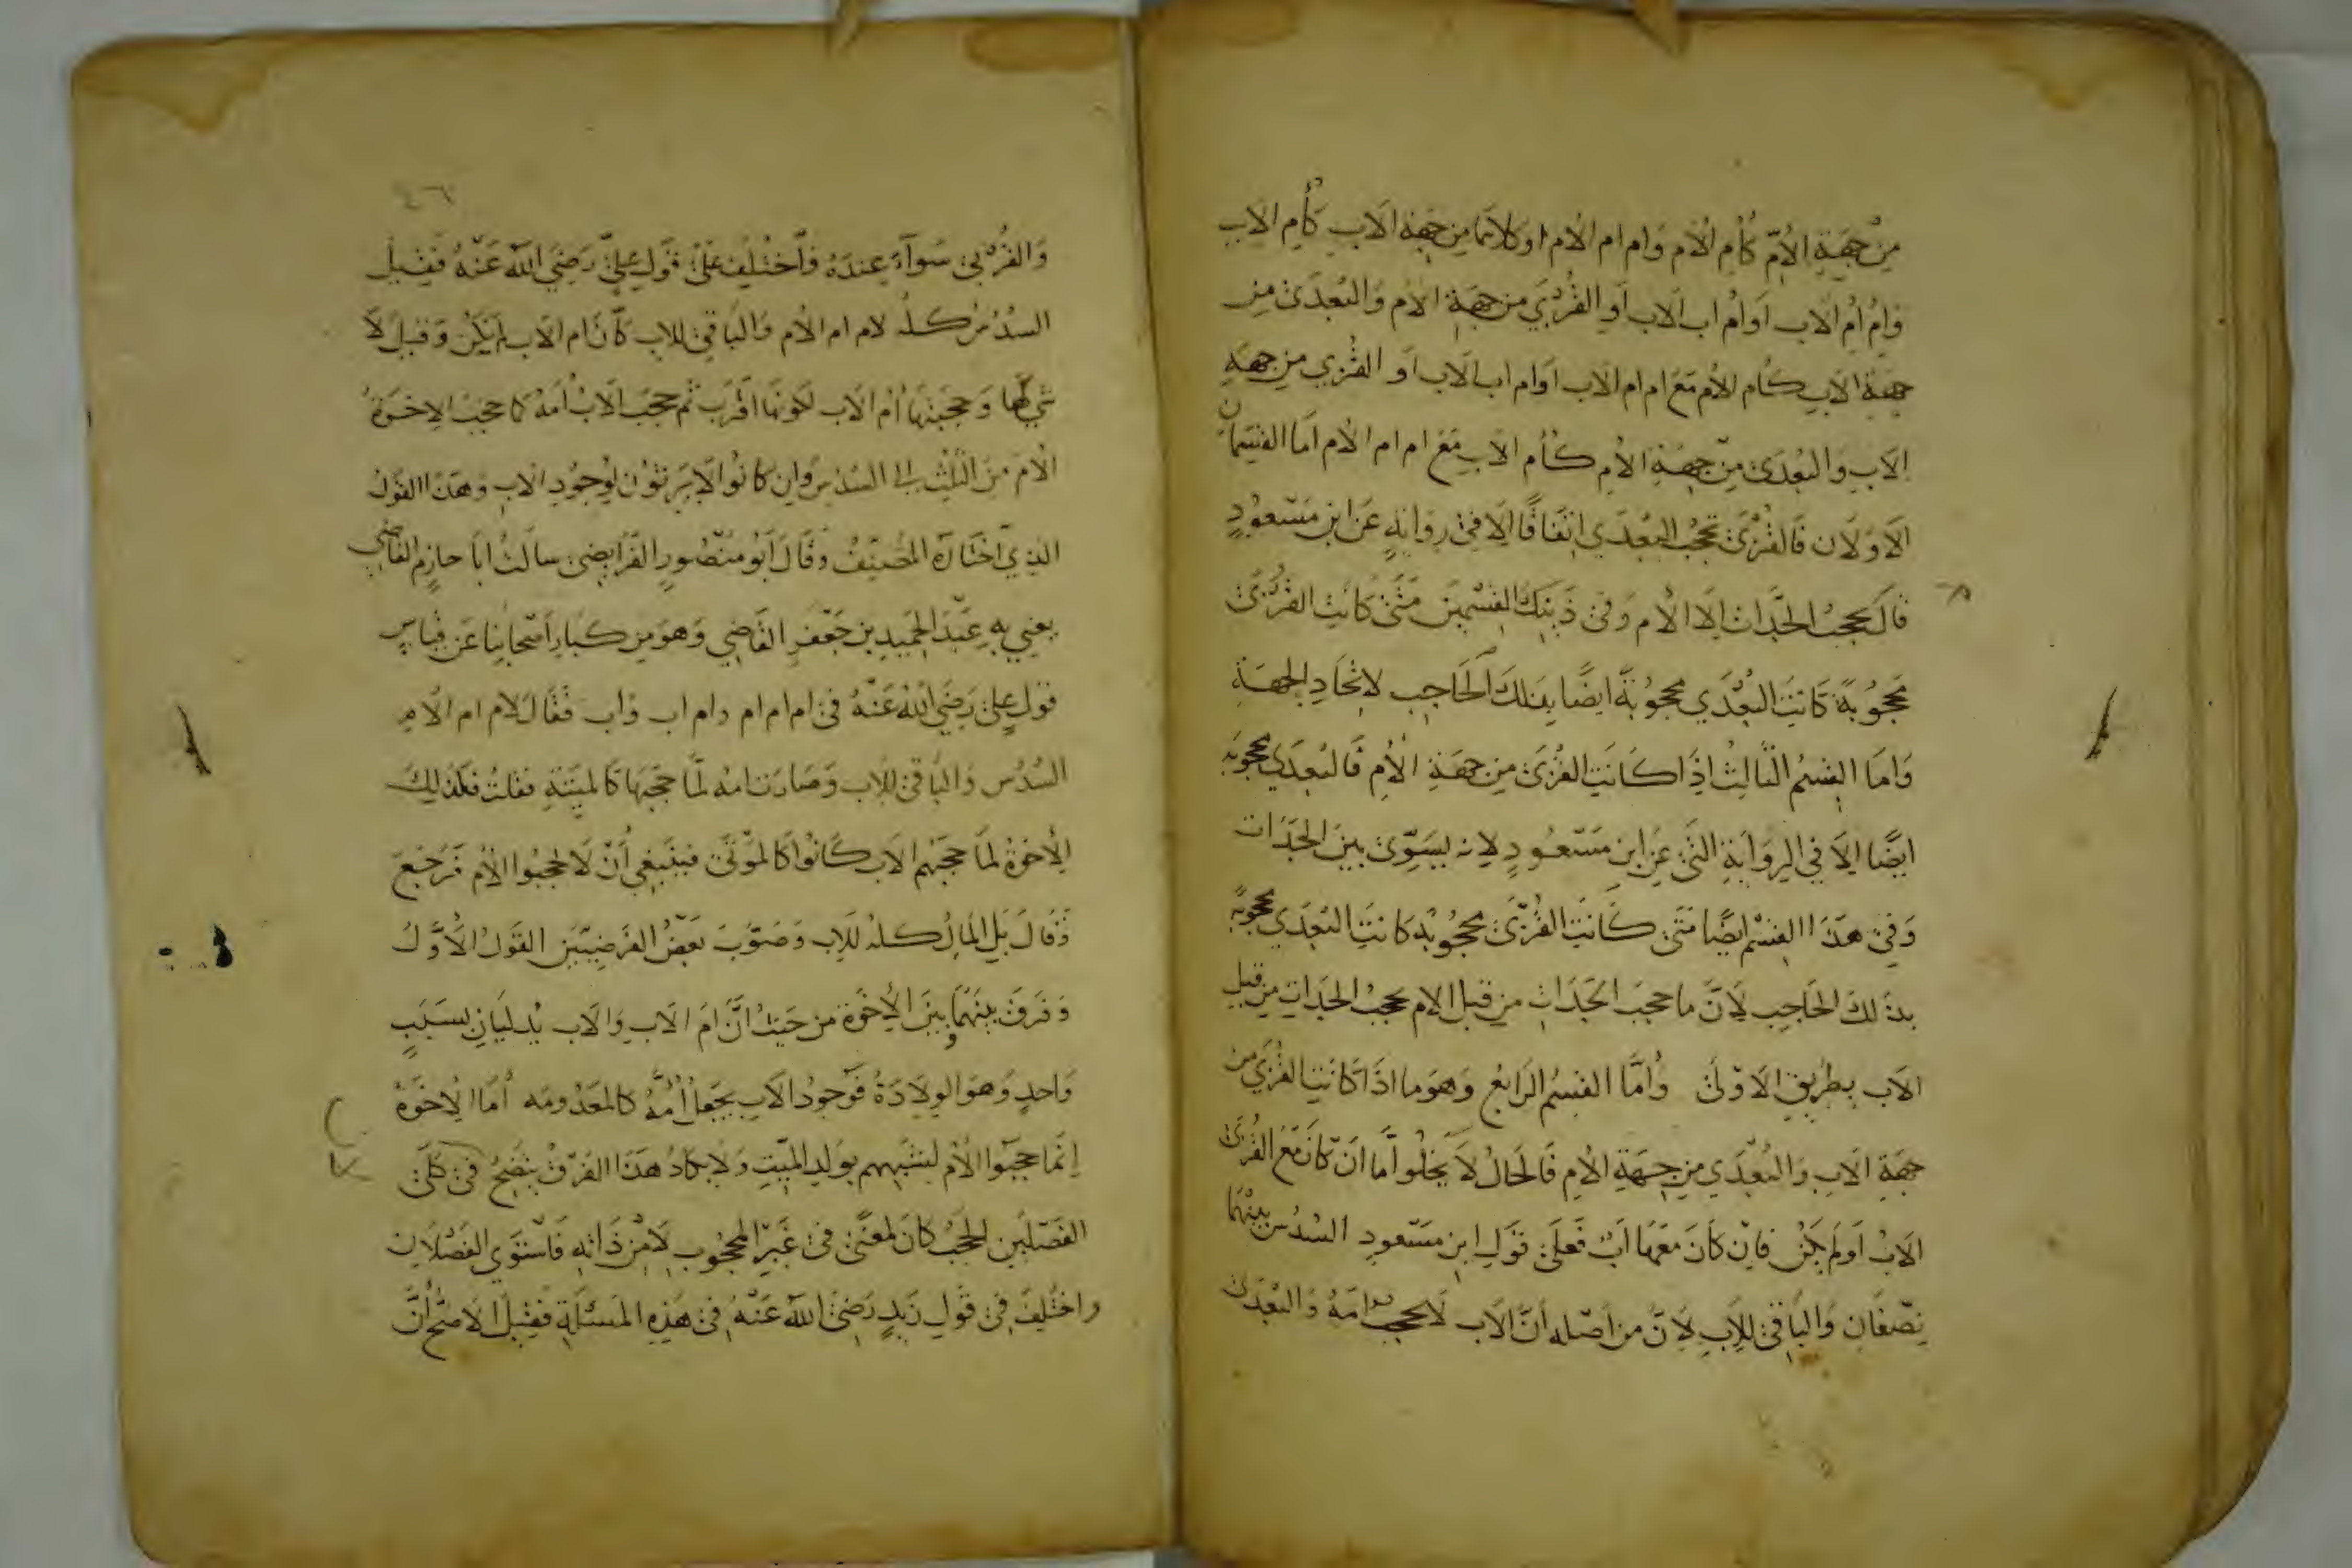 من جهة الامّ كأم الام وام ام الام او كلاتما من جهة الاب كأم الاب
وام ام الاب او ام اب الاب او القربي من جهة الام والبعدى من
جهة الاب كام الام مع ام ام الاب او ام اب الاب او القربي من جهة
الاب والبعدى من جهة الام كأم الاب مع ام ام الام اما القسمان
الاولان فالقربى تحجب البعدي اتفاقا الا في رواية عن ابن مسعود
قال يحجب الجدات الا الام وفى ذينك القسمين متى كانت القربى
محجوبة كانت البعدي محجوبة ايضا بذلك الحاجب لاتحاد الجهة
واما القسم الثالث اذا كانت القربى من جهة الام فالبعدي محجوبة
ايضا الا في الرواية التى عن ابن مسعود لانه يسوّى بين الجدات
وفى هذا القسم ايضا متى كانت القربى محجوبة كانت البعدي محجوبة
بذلك الحاجب لانّ ما حجب الجدات من قبل الام يحجب الجدات من قبل
الاب بطريق الاولى وامّا القسم الرابع وهو ما اذا كانت القربي من
جهة الاب والبعدي من جهة الام فالحال لا يخلوا اما ان كان مع القربى
الاب او لم يكن فان كان معها اب فعلى قول ابن مسعود السدس بينهما
نصفان والباقى للاب لانّ من اصله انّ الاب لا يحجب امه والبعدى
٤٦
والقربى سواء عنده واختلف على قول عليّ رضي الله عنه فقيل
السدس كله لام ام الام والباقى للاب كانّ ام الاب لم يكن وقيل لا
شي لها وحجبتها ام الاب لكونها اقرب ثم حجب الاب امه كما حجب الاخوة
الام من الثلث الى السدس وان كانوا لا يرثون لوجود الاب وهذا القول
الذي اختاره المصنف وقال ابو منصور الفرايضى سالت ابا حازم القاضي
يعني به عبد الحميد بن جعفر القاضي وهو من كبار اصحابنا عن قياس
قول علي رضي الله عنه فى ام ام ام وام اب واب فقال لام ام الام
السدس والباقى للاب وصارت امه لمّا حجبها كالميتة فقلت فكذلك
الاخوة لما حجبهم الاب كانوا كالموتى فينبغي أن لا يحجبوا الام فرجع
وقال بل المال كله للاب وصوّب بعض الفرضيين القول الاوّل
وفرق بينهما وبين الاخوة من حيث انّ ام الاب والاب يدليان بسبب
واحد وهو الولادة فوجود الاب يجعل أمّه كالمعدومه أما الاخوة
انما حجبوا الام لشبههم بولد الميّت ولا يكاد هذا الفرق يتضح فى كلى
الفصلين الحجب كان لمعنى فى غير المحجوب لا من ذاته فاستوي الفصلان
واختلف فى قول زيد رضى الله عنه فى هذه المسئلة فقيل الاصح أنّ